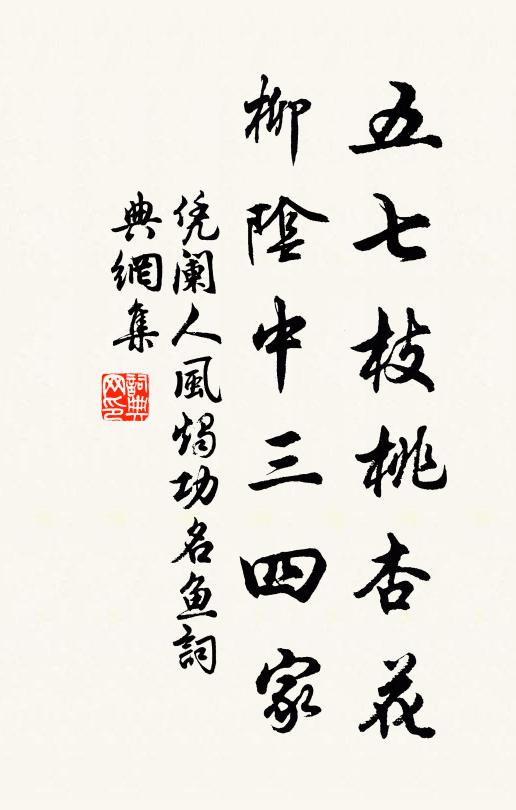 五七枝桃杏花
柳陰中三四家
凭闌人風燭功名鱼詞
典網集
詞典网印